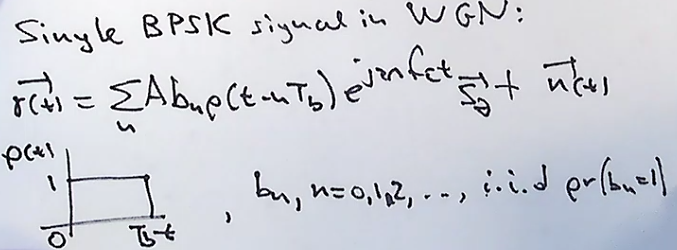 Single BPSK signal in WGN:
r(t) = ∑ₙ A bₙ p(t-nT_b) e^{j2πf_c t} S_θ + n(t)
p(t)
1
0 T_b t
, bₙ, n=0,1,2, ..., i.i.d pr(bₙ=1)